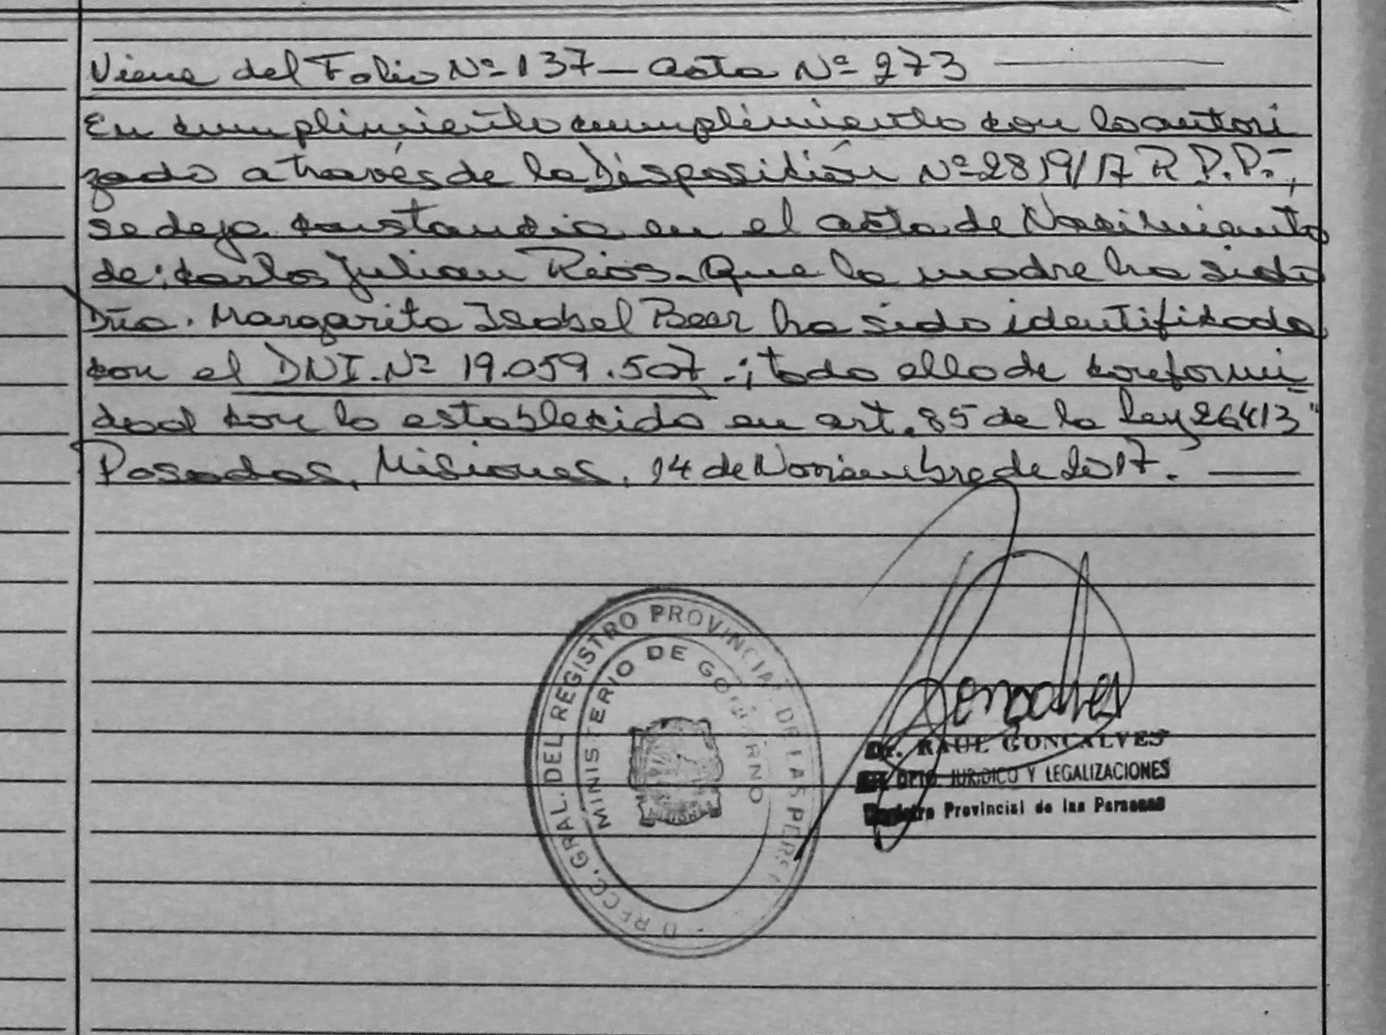 Viene del Folio Nº 137 — acta Nº 273
En cumplimiento cumplimiento con lo autori
zado a través de la Disposición Nº 2819/17 R.P.P.-,
se deja constancia en el acta de Nacimiento
de: Carlos Julian Rios - Que la madre ha sido
Dña. Margarita Isabel Beer ha sido identificada
con el DNI. Nº 19.059.507 -; todo ello de conformi
dad con lo establecido en art. 85 de la Ley 26413"
Posadas, Misiones, 14 de Noviembre de 2017.
DIRECC. GRAL. DEL REGISTRO PROVINCIAL DE LAS PERS
MINISTERIO DE GOBIERNO
Gonçalves
Dr. RAUL GONCALVES
DPTO. JURIDICO Y LEGALIZACIONES
Registro Provincial de las Personas